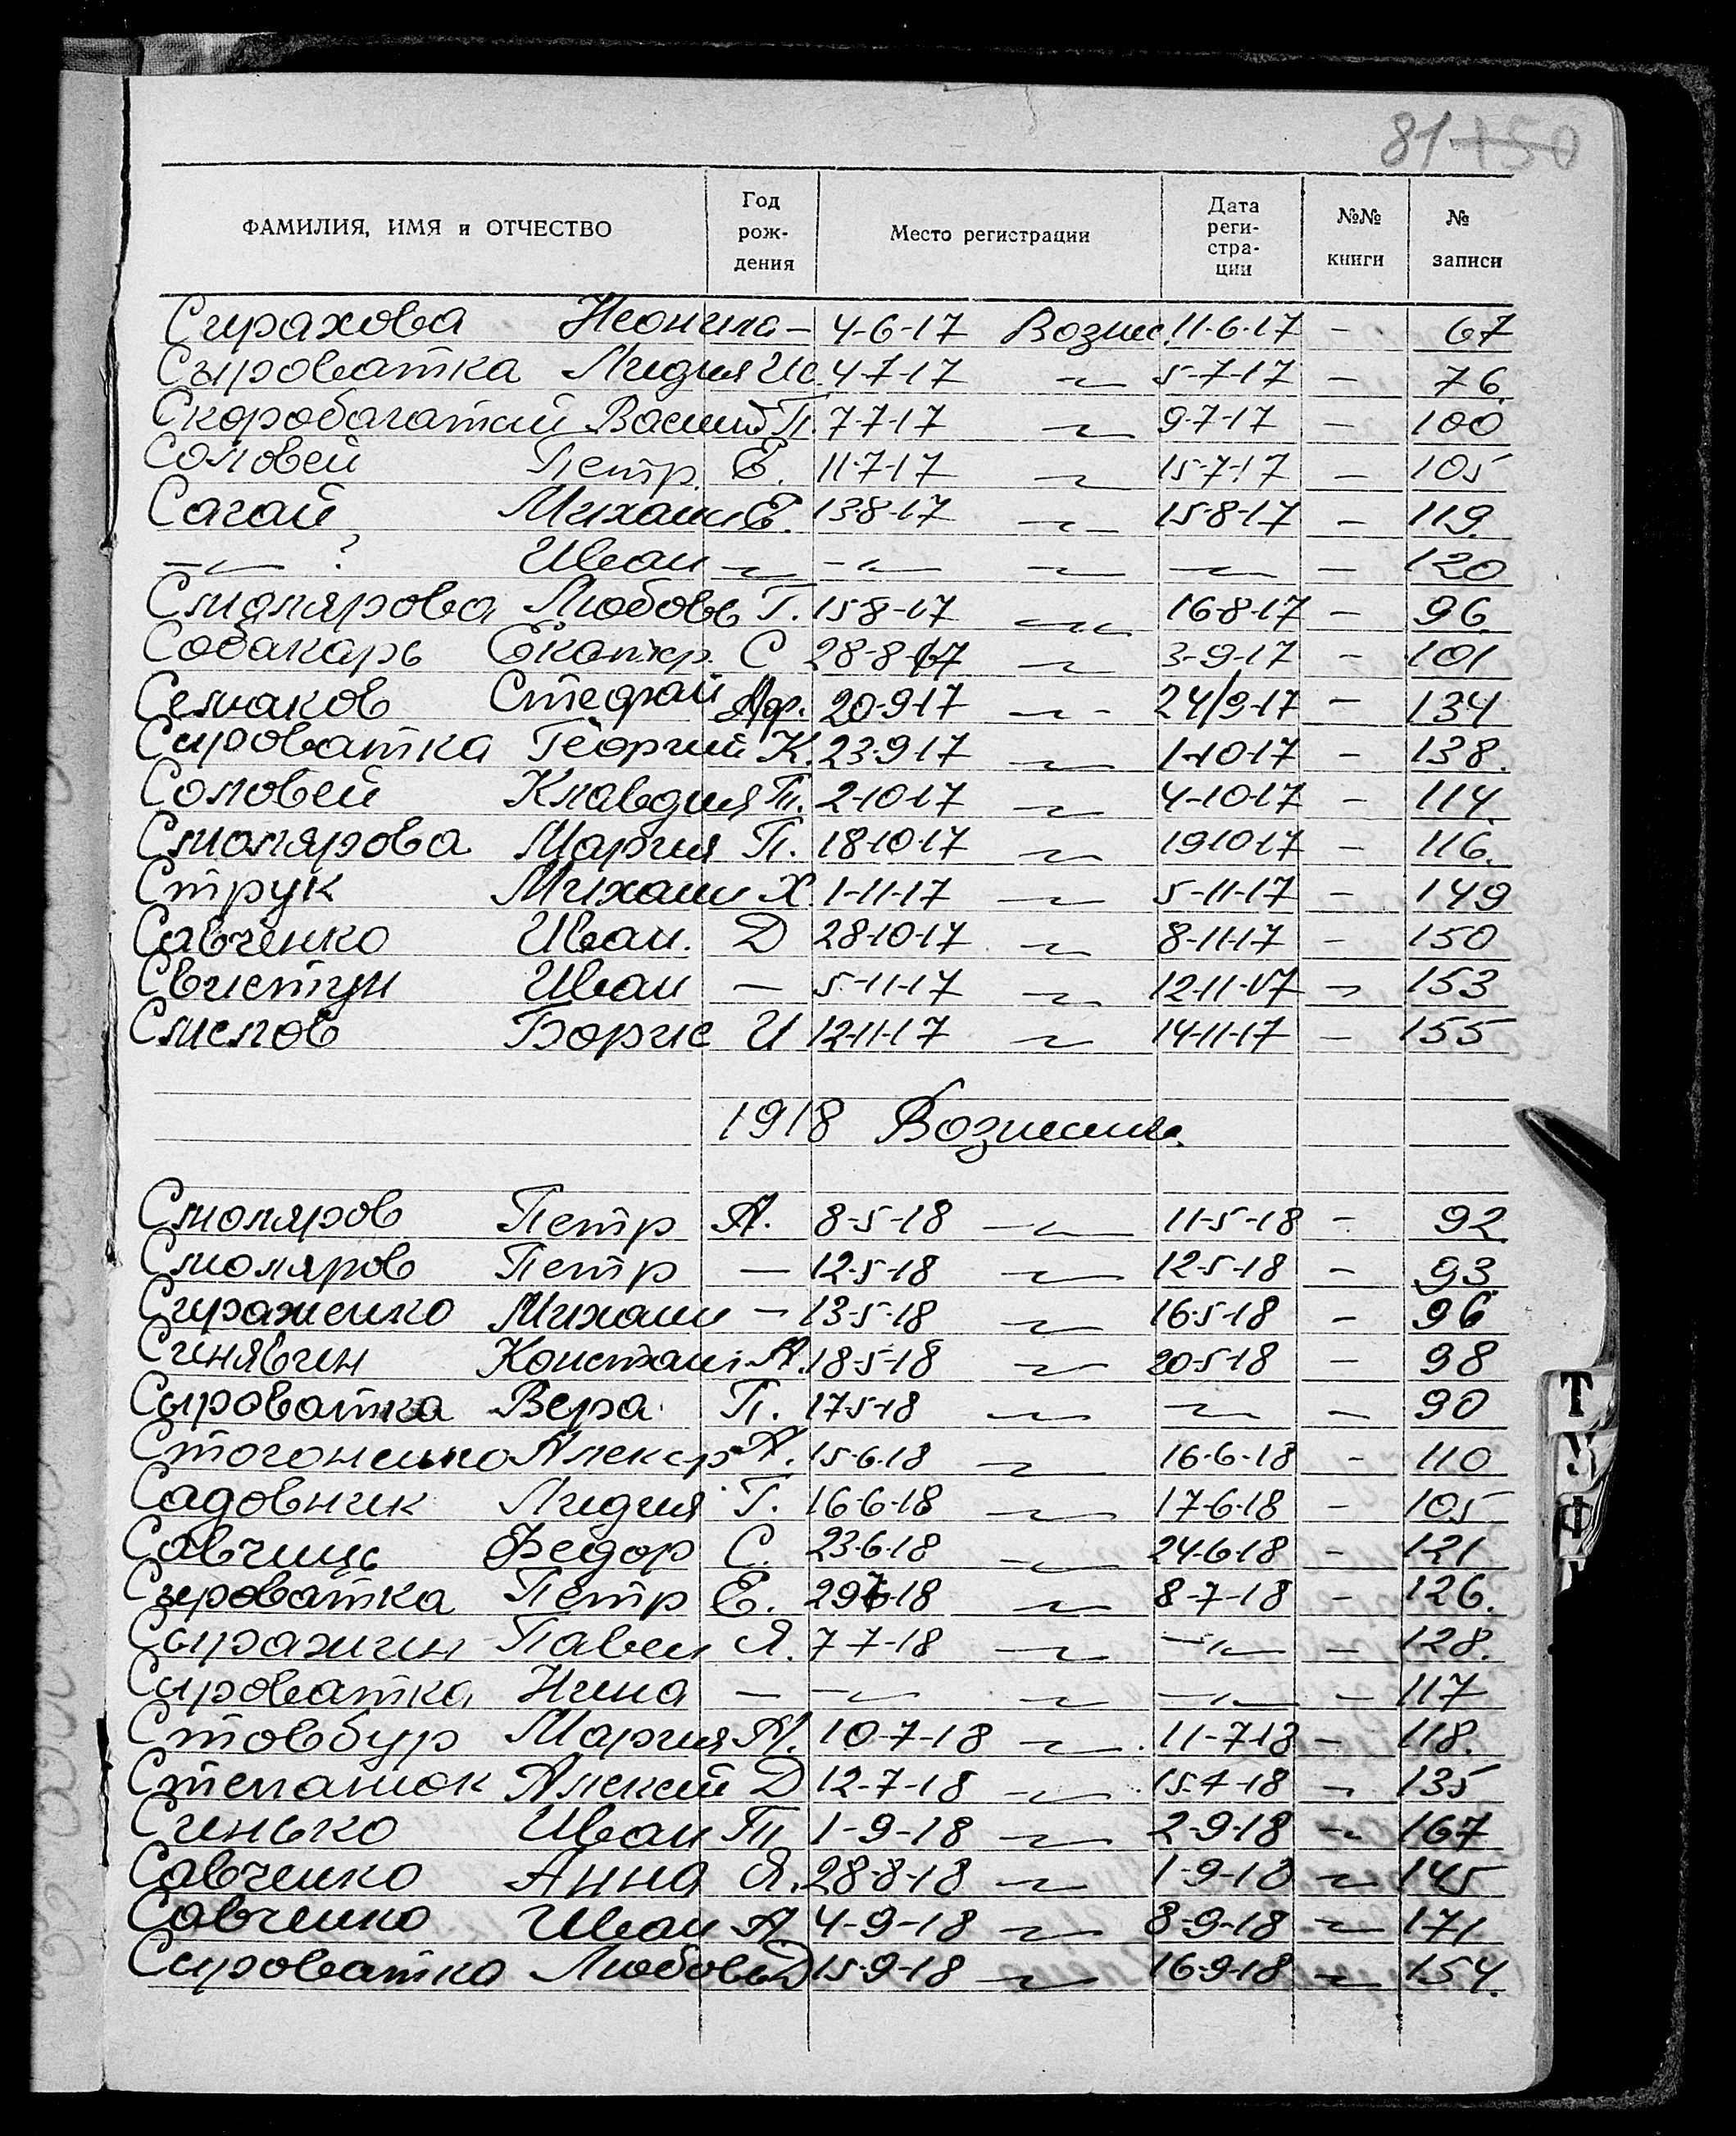 81 150
ФАМИЛИЯ, ИМЯ и ОТЧЕСТВО Год рождения Место регистрации Дата регистрации №№ книги № записи
Страхова Неонила – 4-6-17 Вознес. 11-6-17 – 67
Сыроватка Лидия Ис. 4-7-17 –„– 5-7-17 – 76.
Скоробагатый Василий П. 7-7-17 –„– 9-7-17 – 100
Соловей Петр. Е. 11-7-17 –„– 15-7-17 – 105
Сагай Михаил Е. 13-8-17 –„– 15-8-17 – 119.
–„– ? Иван –„– –„– –„– –„– – 120
Смолярова Любовь Г. 15-8-17 –„– 16-8-17 – 96.
Собакарь Екатер. С 28-8-17 –„– 3-9-17 – 101
Семаков Стефан Аф. 20-9-17 –„– 24/9-17 – 134
Сыроватка Георгий К. 23-9-17 –„– 1-10-17 – 138.
Соловей Клавдия П. 2-10-17 –„– 4-10-17 – 114.
Смолярова Мария П. 18-10-17 –„– 19-10-17 – 116.
Струк Михаил Х. 1-11-17 –„– 5-11-17 – 149
Савченко Иван. Д 28-10-17 –„– 8-11-17 – 150
Свистун Иван – 5-11-17 –„– 12-11-17 – 153
Смелов Борис И 12-11-17 –„– 14-11-17 – 155
1918
Смоляров Петр А. 8-5-18 –„– 11-5-18 – 92.
Смоляров Петр – 12-5-18 –„– 12-5-18 – 93
Стражеико Михаил – 13-5-18 –„– 16-5-18 – 96
Синявин Констант. А. 18-5-18 –„– 20-5-18 – 98
Сыроватка Вера П. 17-5-18 –„– –„– – 90
Алексдр А. 15-6-18 –„– 16-6-18 – 110
Садовник Лидия Г. 16-6-18 –„– 17-6-18 – 105
Савчиць Федор С. 23-6-18 –„– 24-6-18 – 121
Сыроватка Петр Е. 29-6-18 –„– 8-7-18 – 126.
Павел Я. 7-7-18 –„– –„– – 128.
Сыроватка Нина – –„– –„– –„– – 117
Стовбур Мария А. 10-7-18 –„– 11-7-18 – 118.
Степанюк Алексей Д 12-7-18 –„– 15-7-18 – 135
Синько Иван П 1-9-18 –„– 2-9-18 –„– 167
Савченко Анна Я. 28-8-18 –„– 1-9-18 –„– 145
Савченко Иван А 4-9-18 –„– 8-9-18 –„– 171
Сыроватка Любовь Д 15-9-18 –„– 16-9-18 –„– 154.
Т
У
Ф